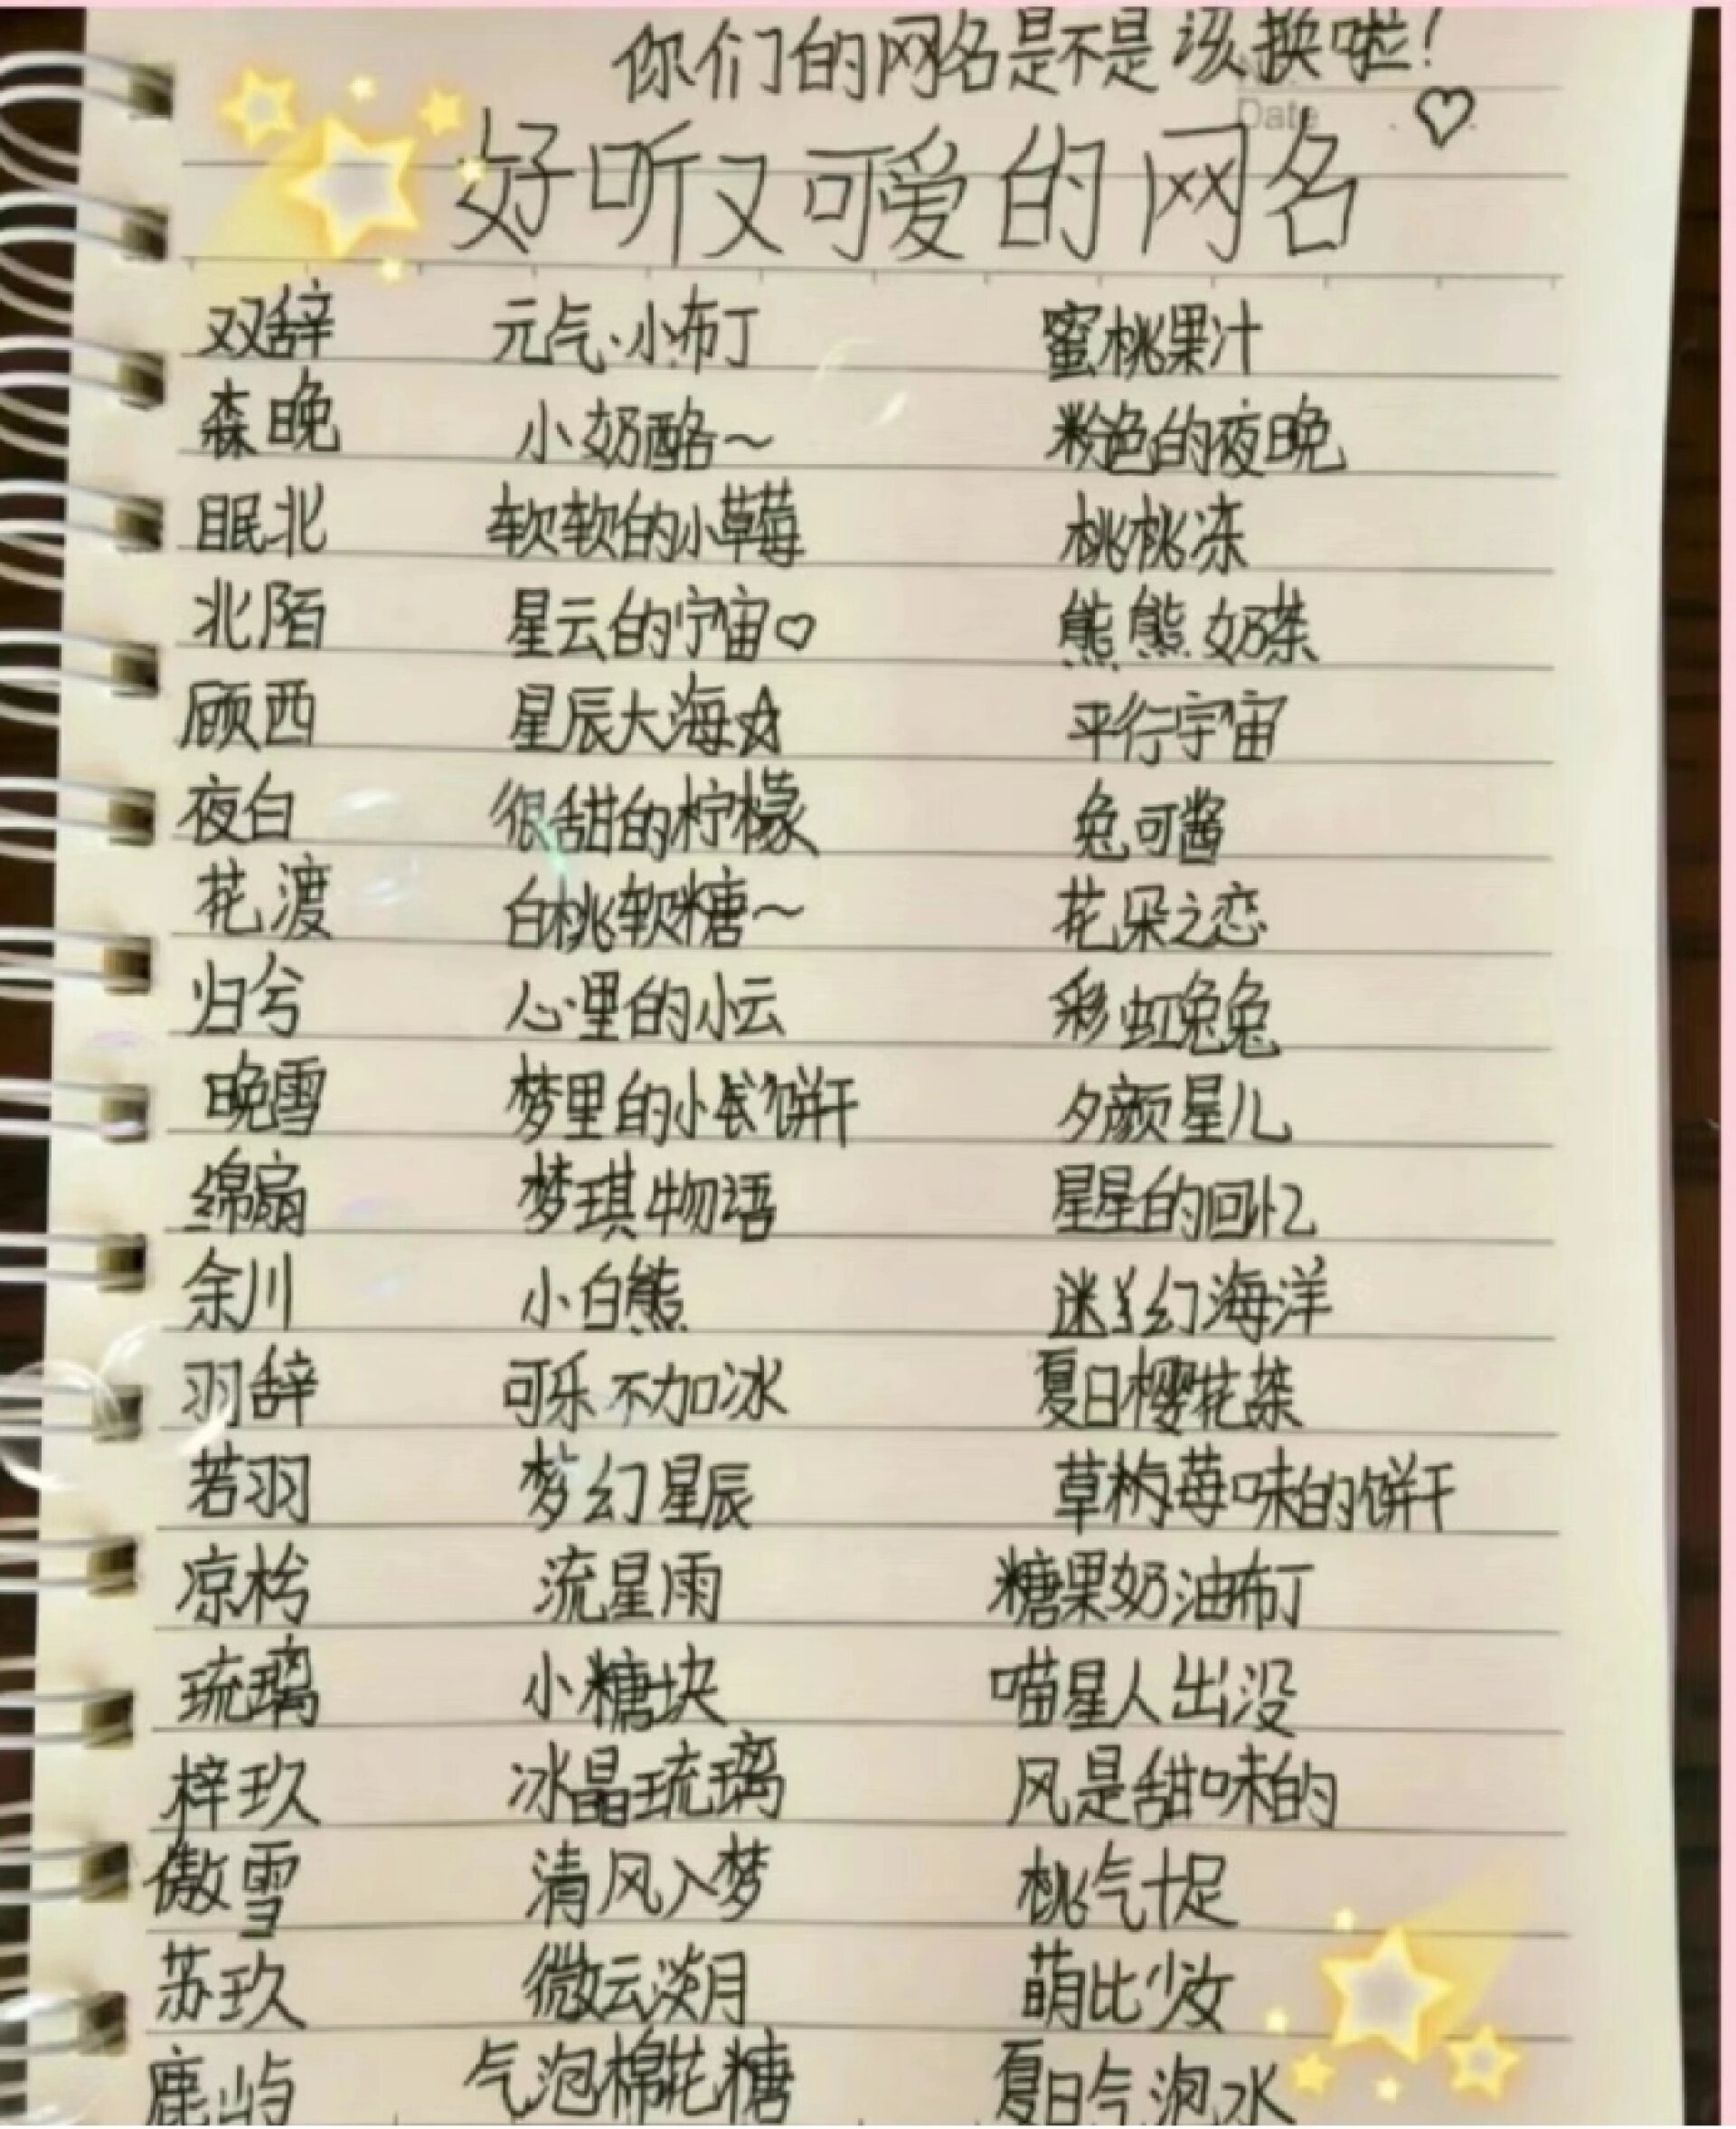 你们的网名是不是该换啦!
Date
好听又可爱的网名 ♡
双辞 元气小布丁 蜜桃果汁
森晚 小奶酪～ 粉色的夜晚
眠北 软软的小草莓 桃桃冻
北陌 星云的宇宙♡ 熊熊奶茶
顾西 星辰大海☆ 平行宇宙
夜白 很甜的柠檬 兔可酱
花渡 白桃软糖～ 花朵之恋
归兮 心里的小云 彩虹兔兔
晚雪 梦里的小饼干 夕颜星儿
绵扇 梦琪物语 星星的回忆
余川 小白熊 迷幻海洋
羽辞 可乐不加冰 夏日樱花茶
若羽 梦幻星辰 草莓味的饼干
凉枍 流星雨 糖果奶油布丁
琉璃 小糖块 喵星人出没
梓玖 冰晶琉璃 风是甜味的
傲雪 清风入梦 桃气十足
苏玖 微云淡月 萌比少女
鹿屿 气泡棉花糖 夏日气泡水